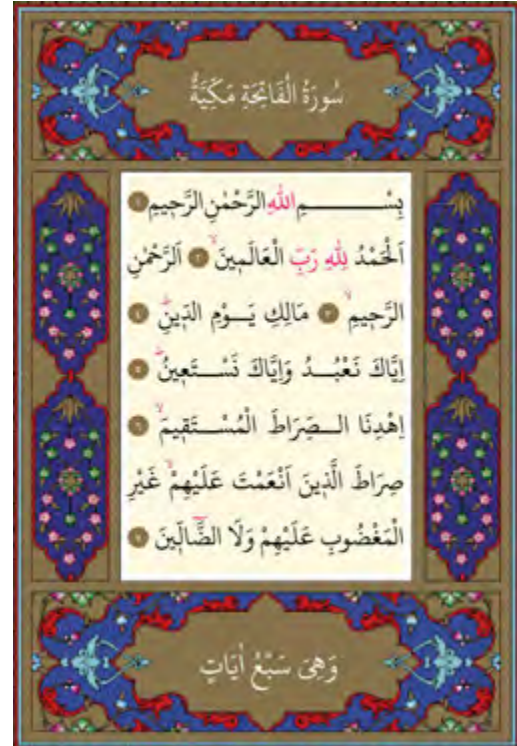 سُورَةُ الْفَاتِحَةِ مَكِّيَّةٌ
بِسْمِ اللّٰهِ الرَّحْمٰنِ الرَّحٖيمِ ١
اَلْحَمْدُ لِلّٰهِ رَبِّ الْعَالَمٖينَۙ ٢ اَلرَّحْمٰنِ
الرَّحٖيمِۙ ٣ مَالِكِ يَوْمِ الدّٖينِۜ ٤
اِيَّاكَ نَعْبُدُ وَاِيَّاكَ نَسْتَعٖينُۜ ٥
اِهْدِنَا الصِّرَاطَ الْمُسْتَقٖيمَۙ ٦
صِرَاطَ الَّذٖينَ اَنْعَمْتَ عَلَيْهِمْۙ غَيْرِ
الْمَغْضُوبِ عَلَيْهِمْ وَلَا الضَّٓالّٖينَ ٧
وَهِىَ سَبْعُ اٰيَاتٍ